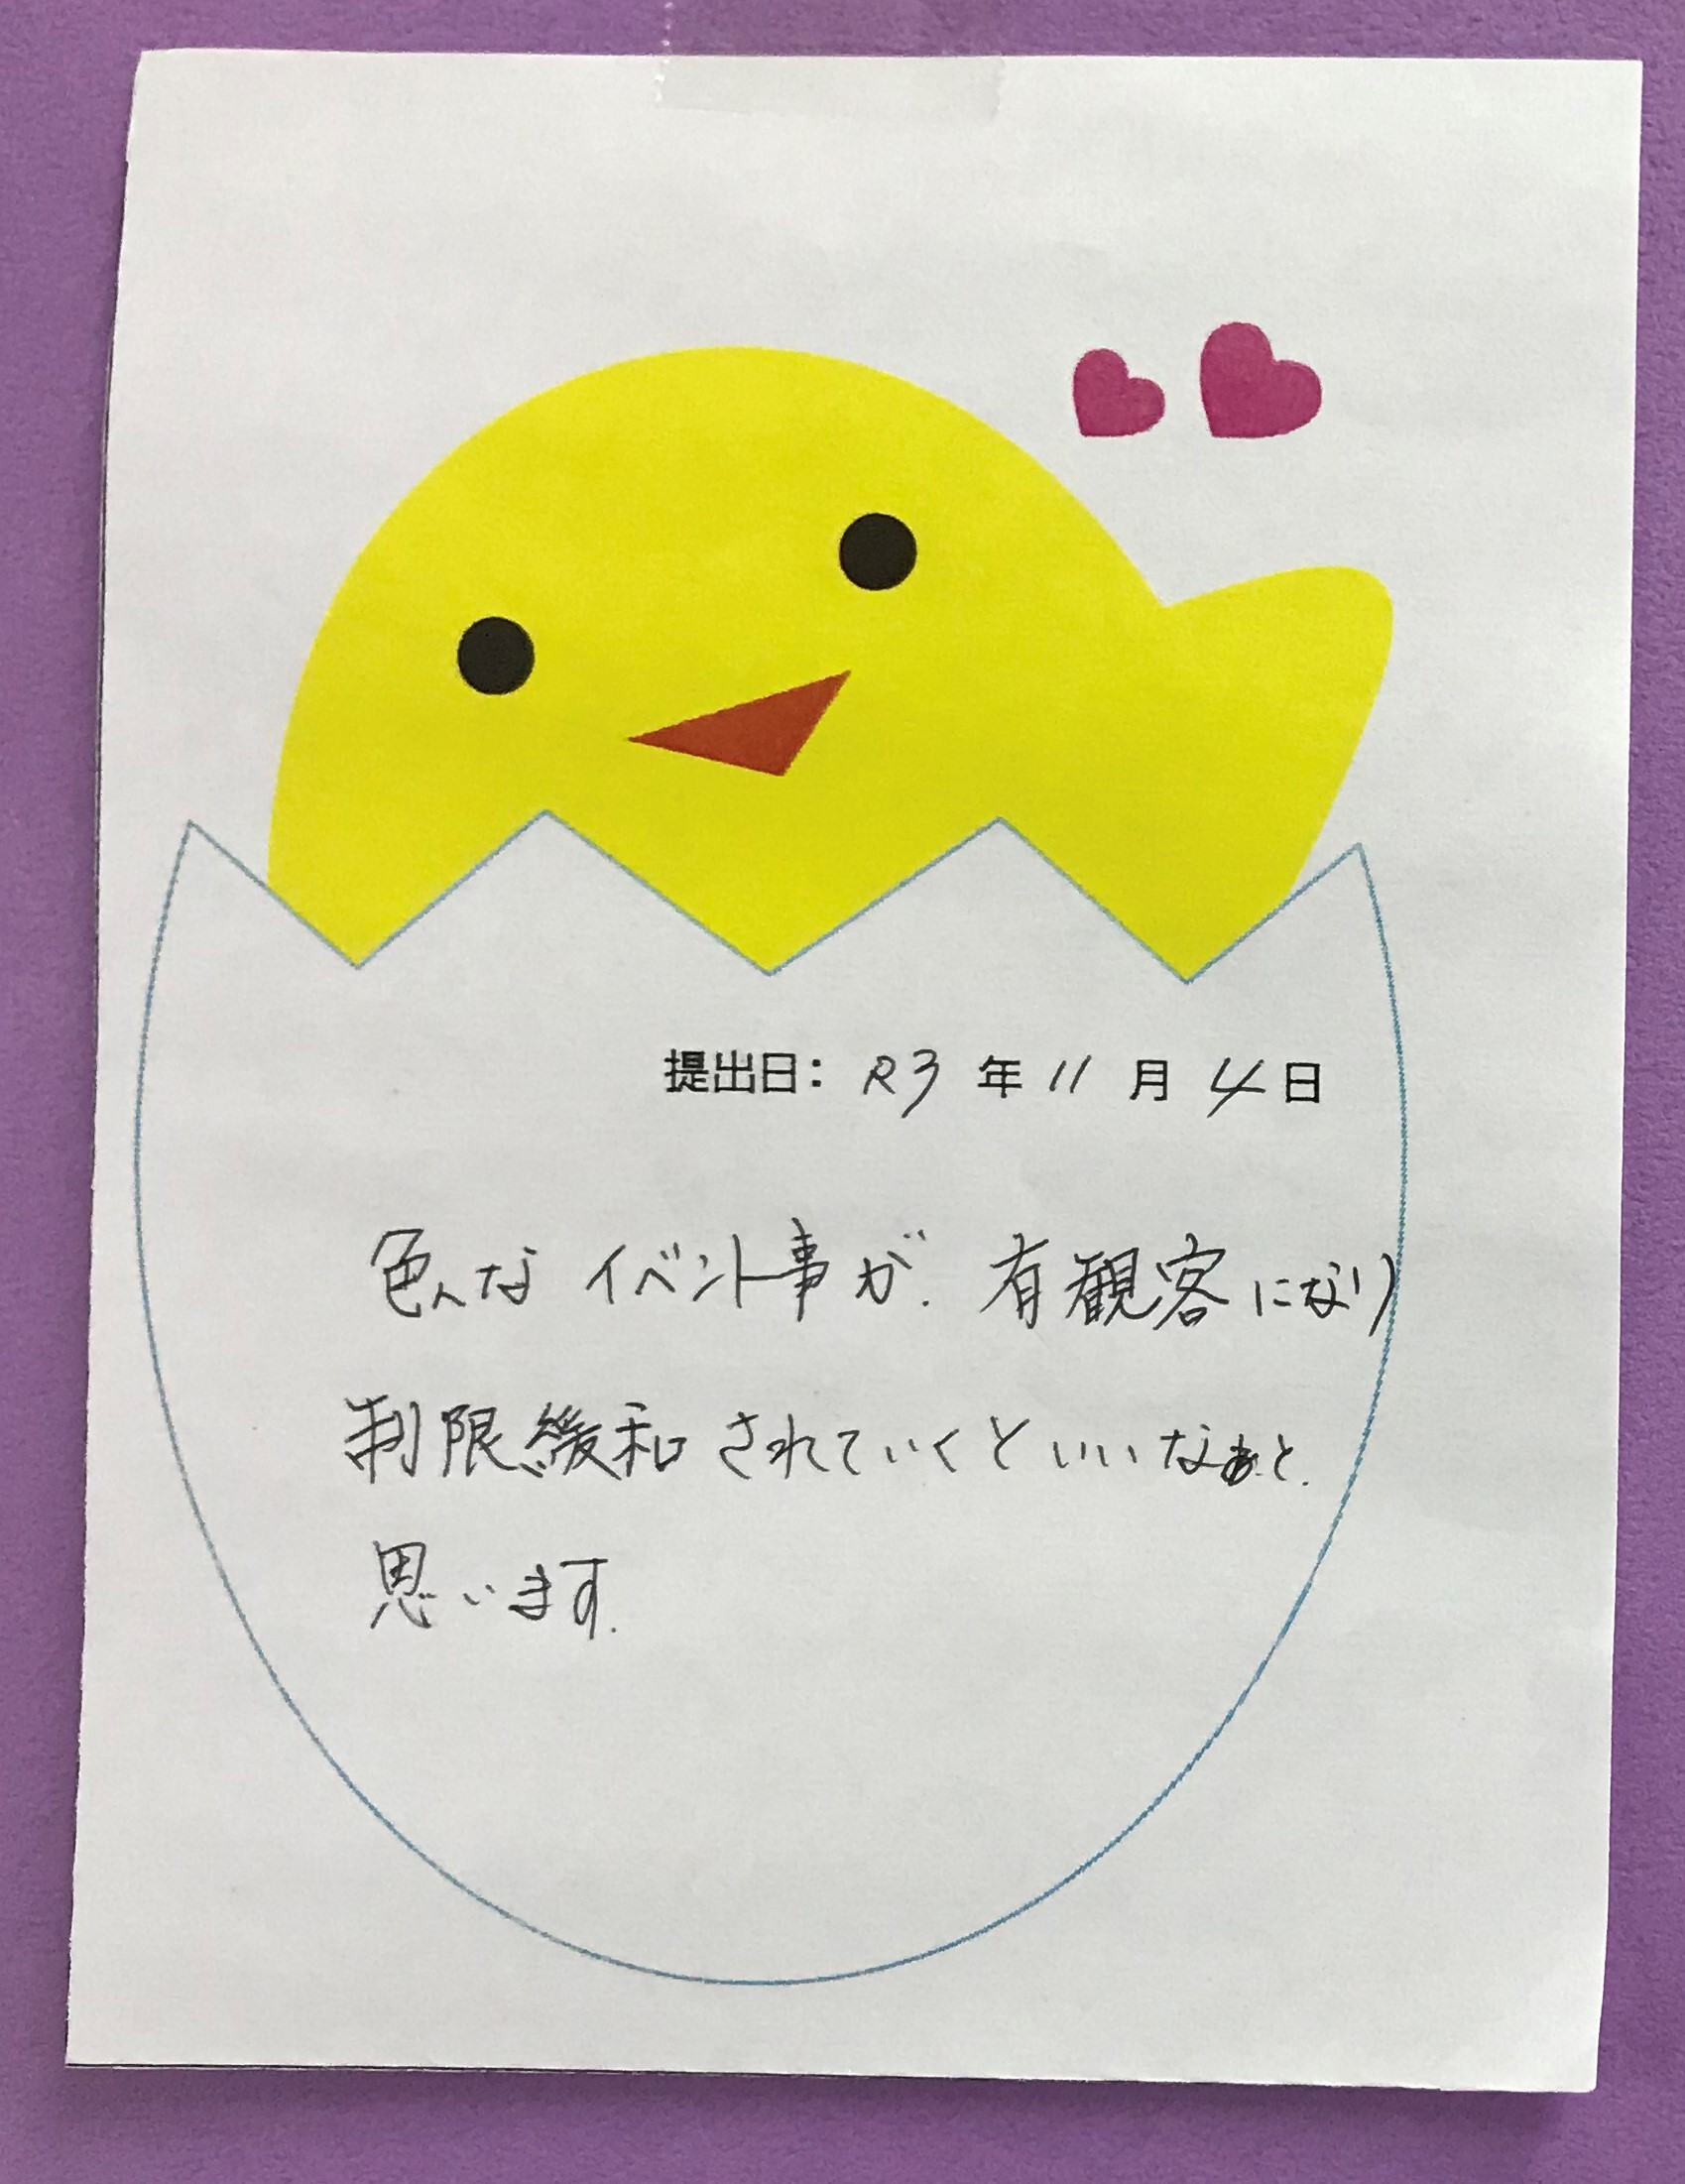 提出日： R3 年 11 月 4 日
色んな イベント事が、有観客になり
制限緩和されていくといいなぁと、
思います。